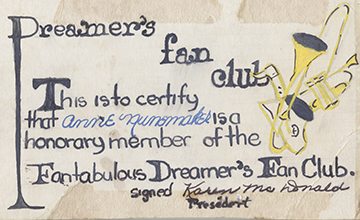 Dreamer's
fan
club
This is to certify
that Anne Nunomaker is a
honorary member of the
Fantabulous Dreamer's Fan Club.
signed Karen Mc Donald
President